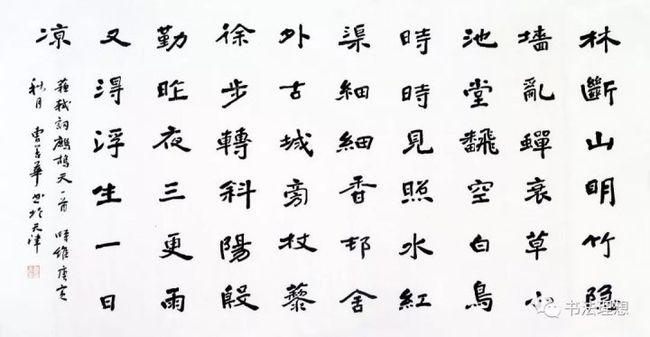 林斷山明竹隐
墻亂蟬衰草小
池堂飜空白鳥
時時見照水紅
渠細細香邨舍
外古城旁杖藜
徐步轉斜陽殷
勤昨夜三更雨
又得浮生一日
凉
蘇軾詞鷓鴣天一首 時維庚寅
秋月 曹善華书於天津
书法理想